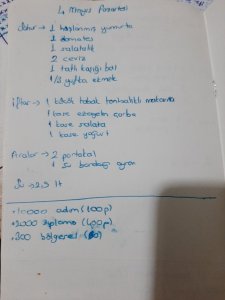 4 Mayıs Pazartesi
Sahur → 1 haşlanmış yumurta
2 domates
1 salatalık
2 ceviz
1 tatlı kaşığı bal
1/3 yufka ekmek
İftar → 1 küçük tabak tonbalıklı makarna
1 kase ezogelin çorba
1 kase salata
1 kase yoğurt
Aralar → 2 portakal
1 su bardağı ayran
Su → 2,5 lt
+10000 adım (100p)
+2000 zıplama (400p)
+300 bölgesel